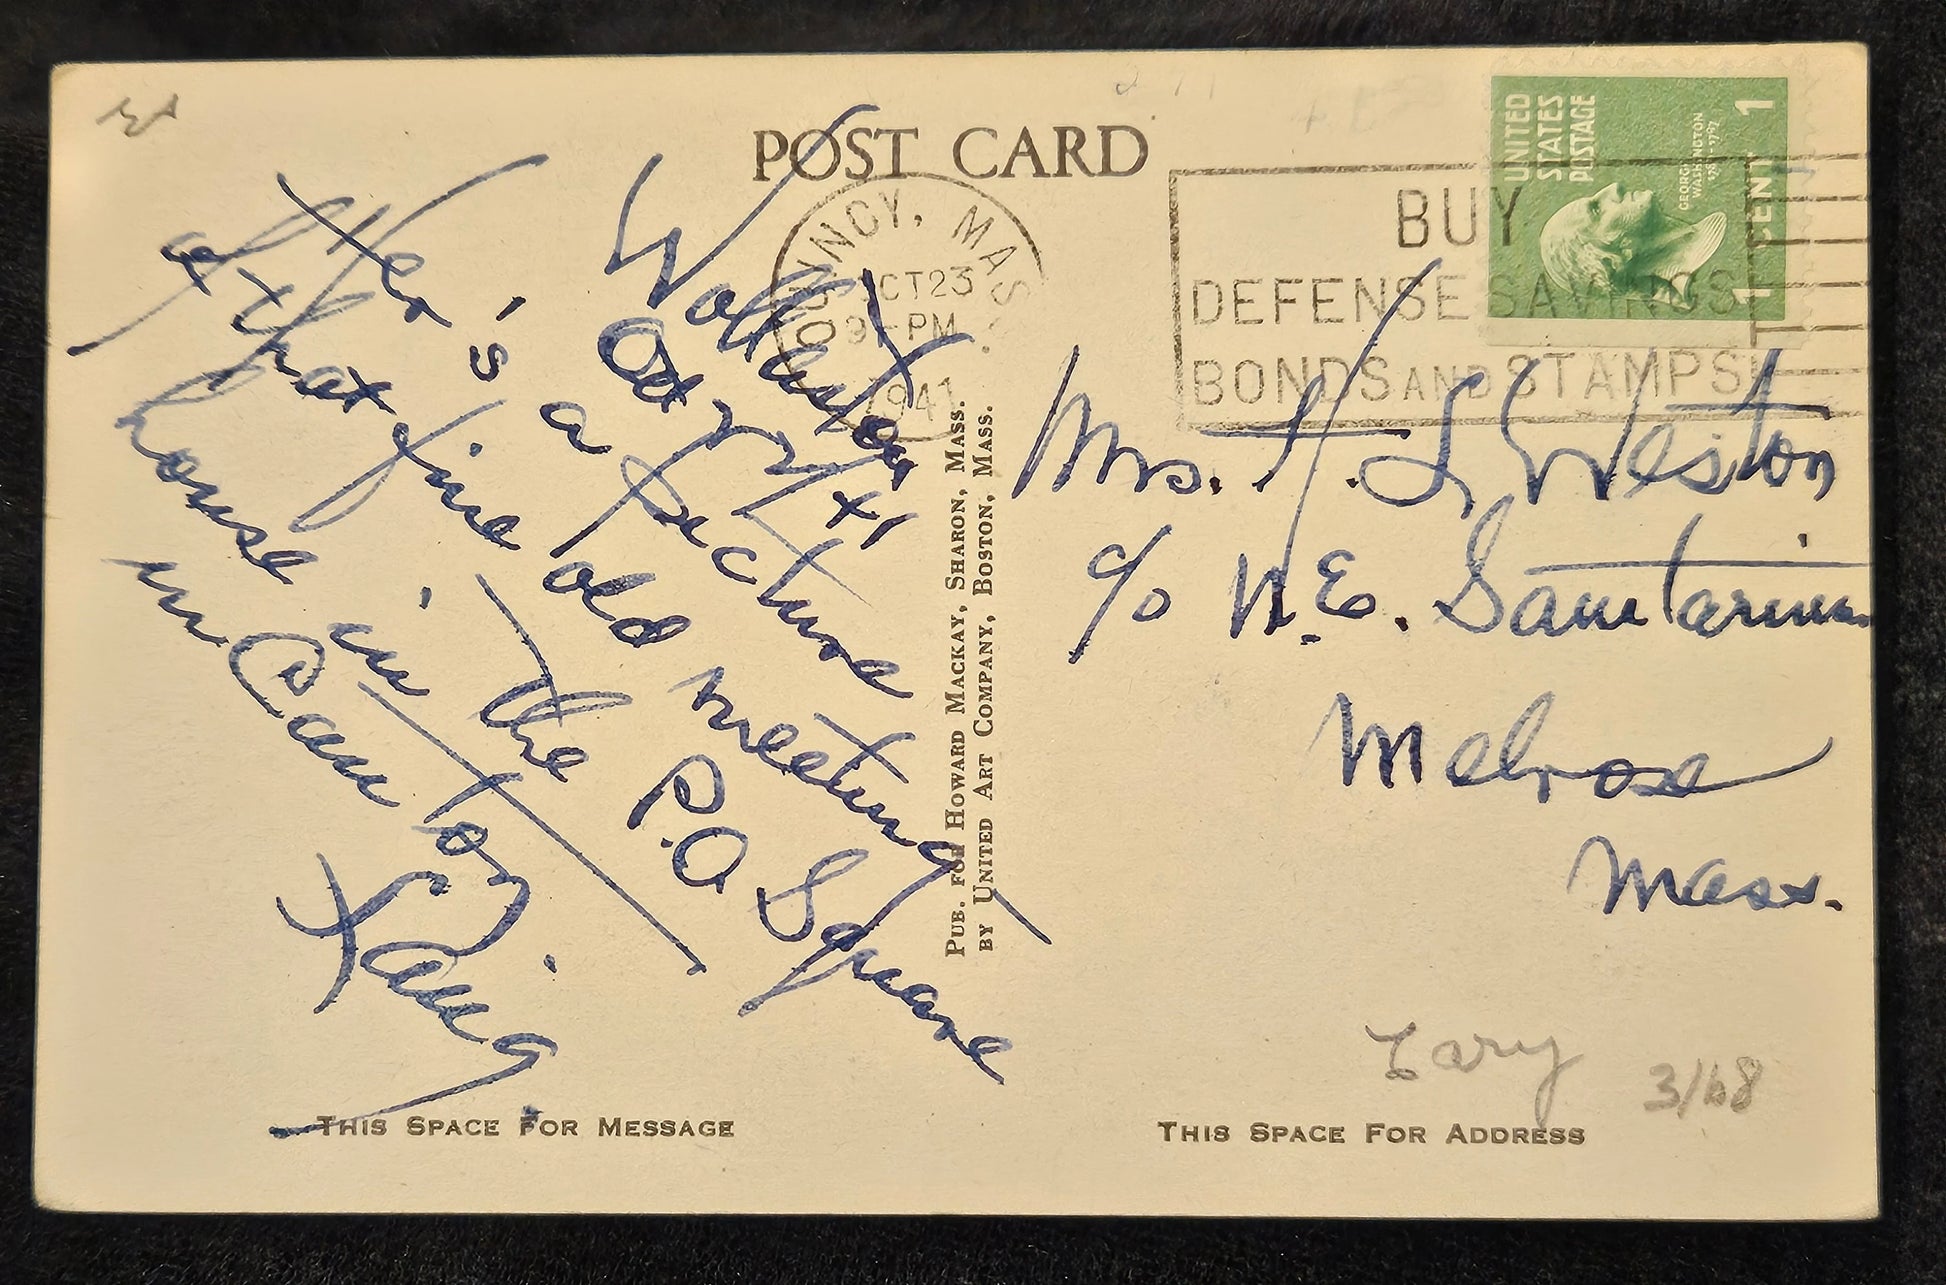 POST CARD
Wollaston
Oct 22/41
Her's a picture
of that fine old meeting
house in the P.O Square
in Canton.
PUB. FOR HOWARD MACKAY, SHARON, MASS.
BY UNITED ART COMPANY, BOSTON, MASS.
THIS SPACE FOR MESSAGE
QUINCY, MASS.
OCT 23
9-PM
1941
BUY
DEFENSE SAVINGS
BONDS AND STAMPS
UNITED
STATES
POSTAGE
GEORGE
WASHINGTON
1 CENT 1
Mrs. H. L Weston
c/o N.E. Sanitarium
Melrose
Mass.
3/68
THIS SPACE FOR ADDRESS